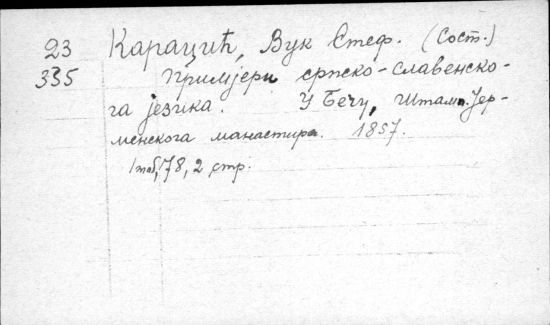 23 Караџић, Вук Стеф. (Сост.)
335 Примјери српско-славенско-
га језика. У Бечу, Штамп. Јер-
менскога манастира. 1857.
78, 2 стр.